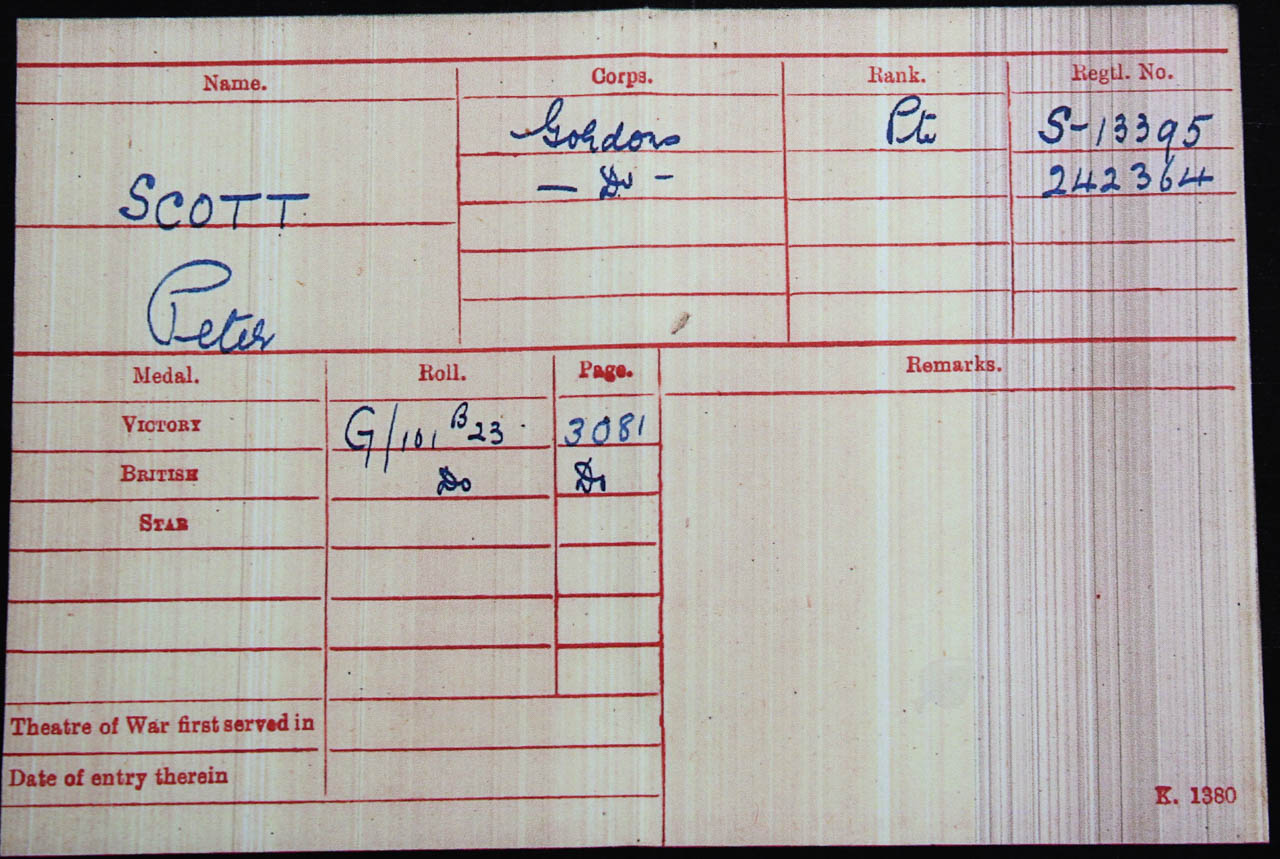 Name. Corps. Rank. Regtl. No.
Gordons Pte S-13395
— Do — 242364
SCOTT
Peter
Medal. Roll. Page. Remarks.
VICTORY G/101 B23 3081
BRITISH Do Do
STAR
Theatre of War first served in
Date of entry therein
K. 1380